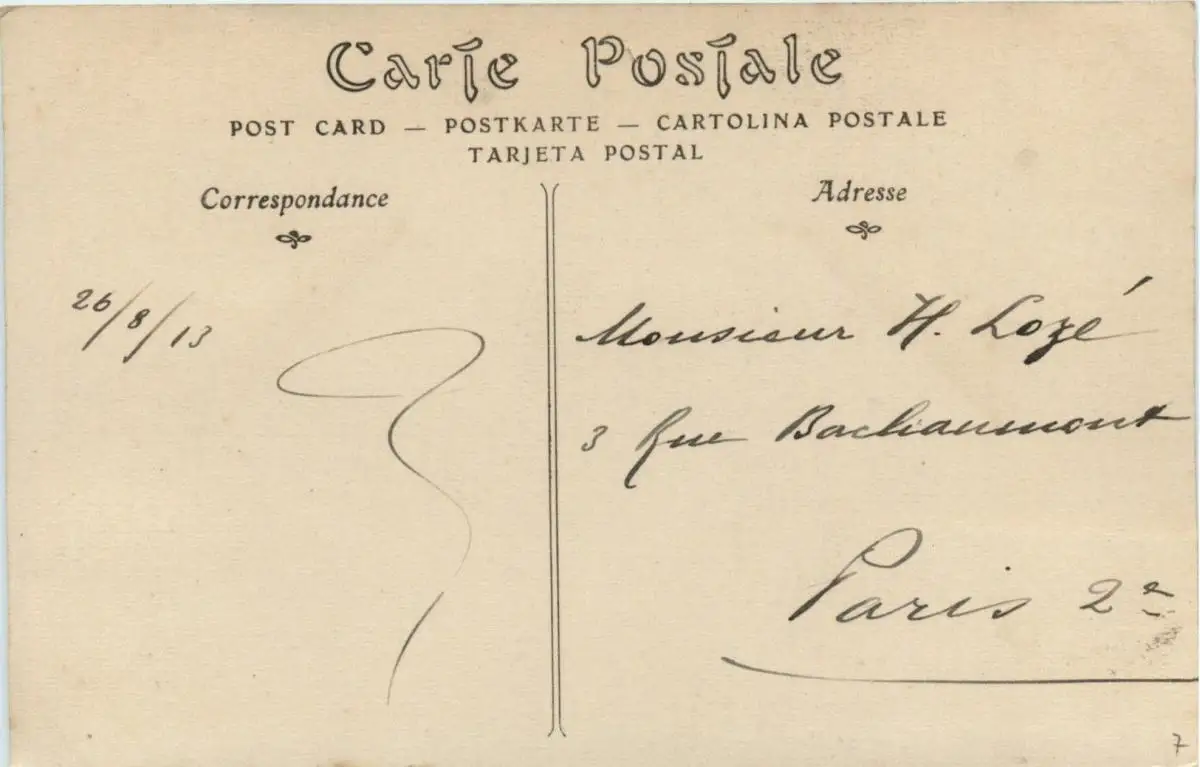 Carte Postale
POST CARD — POSTKARTE — CARTOLINA POSTALE
TARJETA POSTAL
Correspondance
26/8/13
Adresse
Monsieur H. Lozé
3 Rue Bachaumont
Paris 2e
7